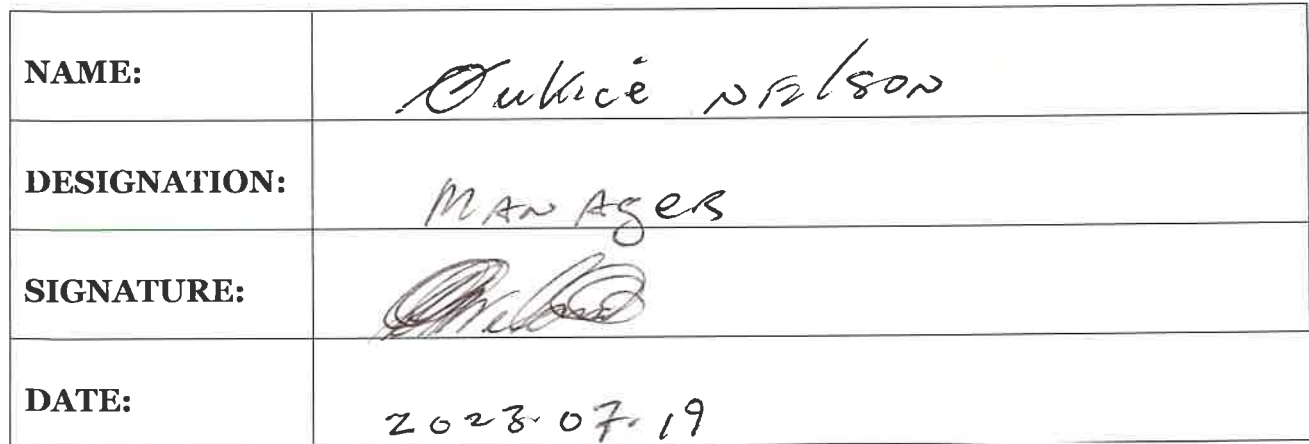 NAME: NELSON
DESIGNATION: MANAgeR
SIGNATURE:
DATE: 2023.07.19